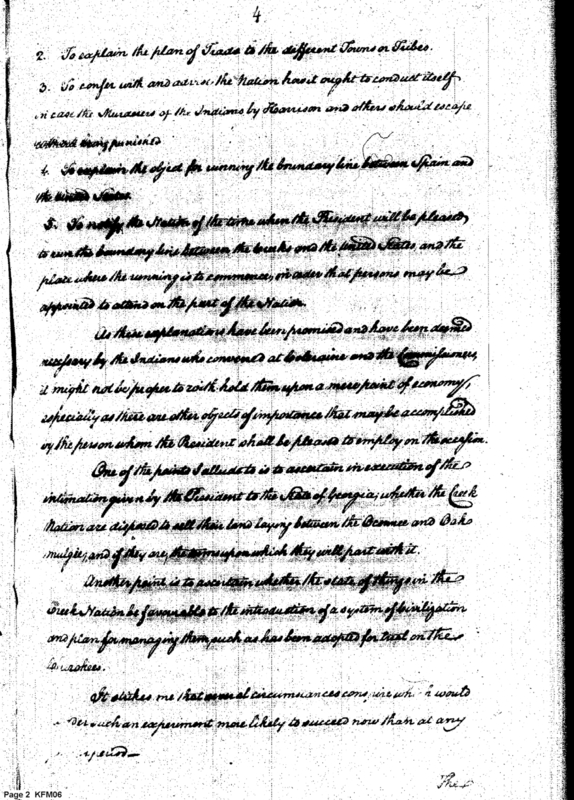 4
2. To explain the plan of Trade to the different Towns or Tribes.
3. To confer with and advise the Nation how it ought to conduct itself
in case the Murderers of the Indians by Harrison and others should escape
without being punished
4. To explain the object for running the boundary line between Spain and
the United States.
5. To notify the Nation of the time when the President will be pleased
to run the boundary line between the Creeks and the United States, and the
place where the running is to commence, in order that persons may be
appointed to attend on the part of the Nation.
As these explanations have been promised and have been deemed
necessary by the Indians who convened at Coleraine and the Commissioners,
it might not be proper to with hold them upon a mere point of economy,
especially as there are other objects of importance that may be accomplished
by the person whom the President shall be pleased to employ on the occasion.
One of the points I allude to is to ascertain in execution of the
intimation given by the President to the State of Georgia, whether the Creek
Nation are disposed to sell their land laying between the Oconnee and Oak
mulgee, and if they are, the terms upon which they will part with it.
Another point is to ascertain whether the state of things in the
Creek Nation be favourable to the introduction of a system of Civilization
and plan for managing them, such as has been adopted for trial on the
Cherokees.
It strikes me that several circumstances conspire which would
render such an experiment more likely to succeed now than at any
period—
The
Page 2 KFM06